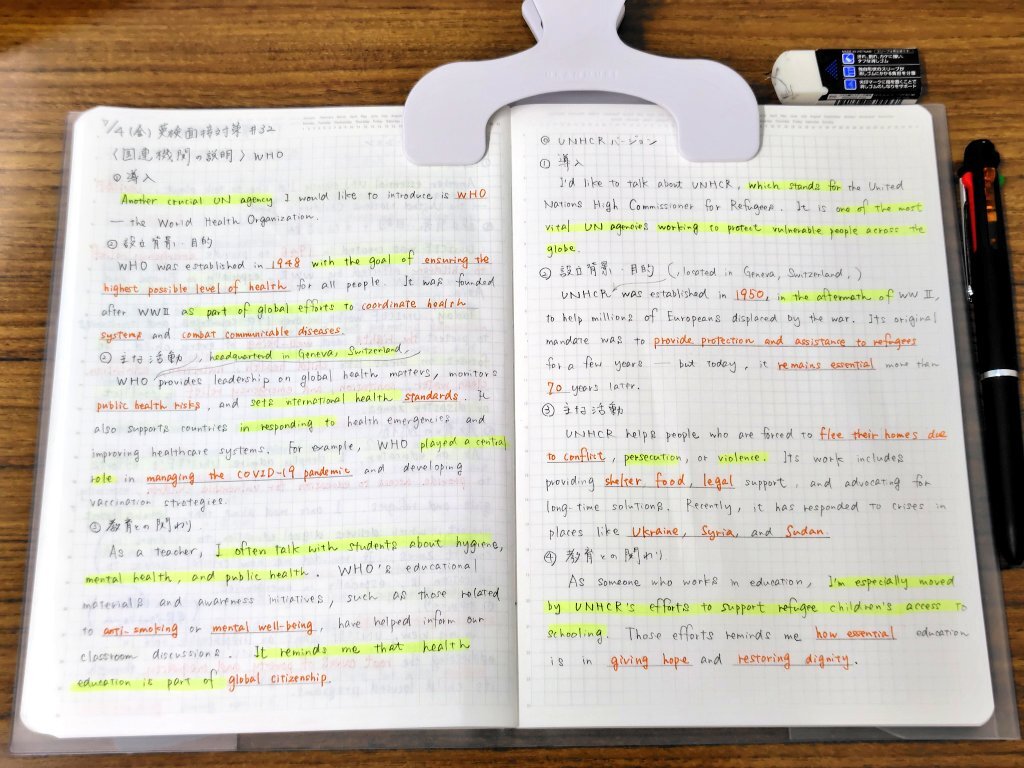 7/4(金) 英検面接対策 #32
〈国連機関の説明〉WHO
① 導入
Another crucial UN agency I would like to introduce is WHO
— the World Health Organization.
② 設立背景・目的
WHO was established in 1948 with the goal of ensuring the
highest possible level of health for all people. It was founded
after WWⅡ as part of global efforts to coordinate health
systems and combat communicable diseases.
② 主な活動 , headquartered in Geneva, Switzerland,
WHO provides leadership on global health matters, monitors
public health risks, and sets international health standards. It
also supports countries in responding to health emergencies and
improving healthcare systems. For example, WHO played a central
role in managing the COVID-19 pandemic and developing
vaccination strategies.
③ 教育との関わり
As a teacher, I often talk with students about hygiene,
mental health, and public health. WHO's educational
materials and awareness initiatives, such as those related
to anti-smoking or mental well-being, have helped inform our
classroom discussions. It reminds me that health
education is part of global citizenship.
UNHCRバージョン
① 導入
I'd like to talk about UNHCR, which stands for the United
Nations High Commissioner for Refugees. It is one of the most
vital UN agencies working to protect vulnerable people across the
globe.
② 設立背景・目的 (, located in Geneva, Switzerland,)
UNHCR was established in 1950, in the aftermath of WWⅡ,
to help millions of Europeans displaced by the war. Its original
mandate was to provide protection and assistance to refugees
for a few years — but today, it remains essential more than
70 years later.
③ 主な活動
UNHCR helps people who are forced to flee their homes due
to conflict, persecution, or violence. Its work includes
providing shelter, food, legal support, and advocating for
long-time solutions. Recently, it has responded to crises in
places like Ukraine, Syria, and Sudan.
④ 教育との関わり
As someone who works in education, I'm especially moved
by UNHCR's efforts to support refugee children's access to
schooling. Those efforts reminds me how essential education
is in giving hope and restoring dignity.